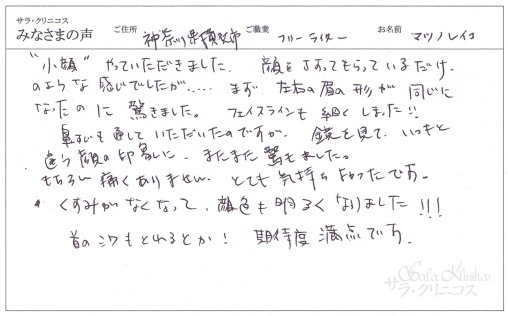 サラ・クリニコス
みなさまの声 ご住所 神奈川県横浜市 ご職業 フリーライター お名前 マツノレイコ
"小顔" やっていただきました。 顔をさすってもらっているだけ
のような感じでしたが..... まず 左右の眉の形が 同じに
なったのに 驚きました。 フェイスラインも 細くしまった!!
鼻すじも通していただいたのですが、 鏡を見て、いつもと
違う顔の印象に、 またまた 驚きました。
もちろん 痛くありません。 とても気持ちよかったです。
くすみがなくなって、顔色も明るくなりました!!!
首のシワもとれるとか! 期待度 満点です。
Sala Klinikos
サラ・クリニコス